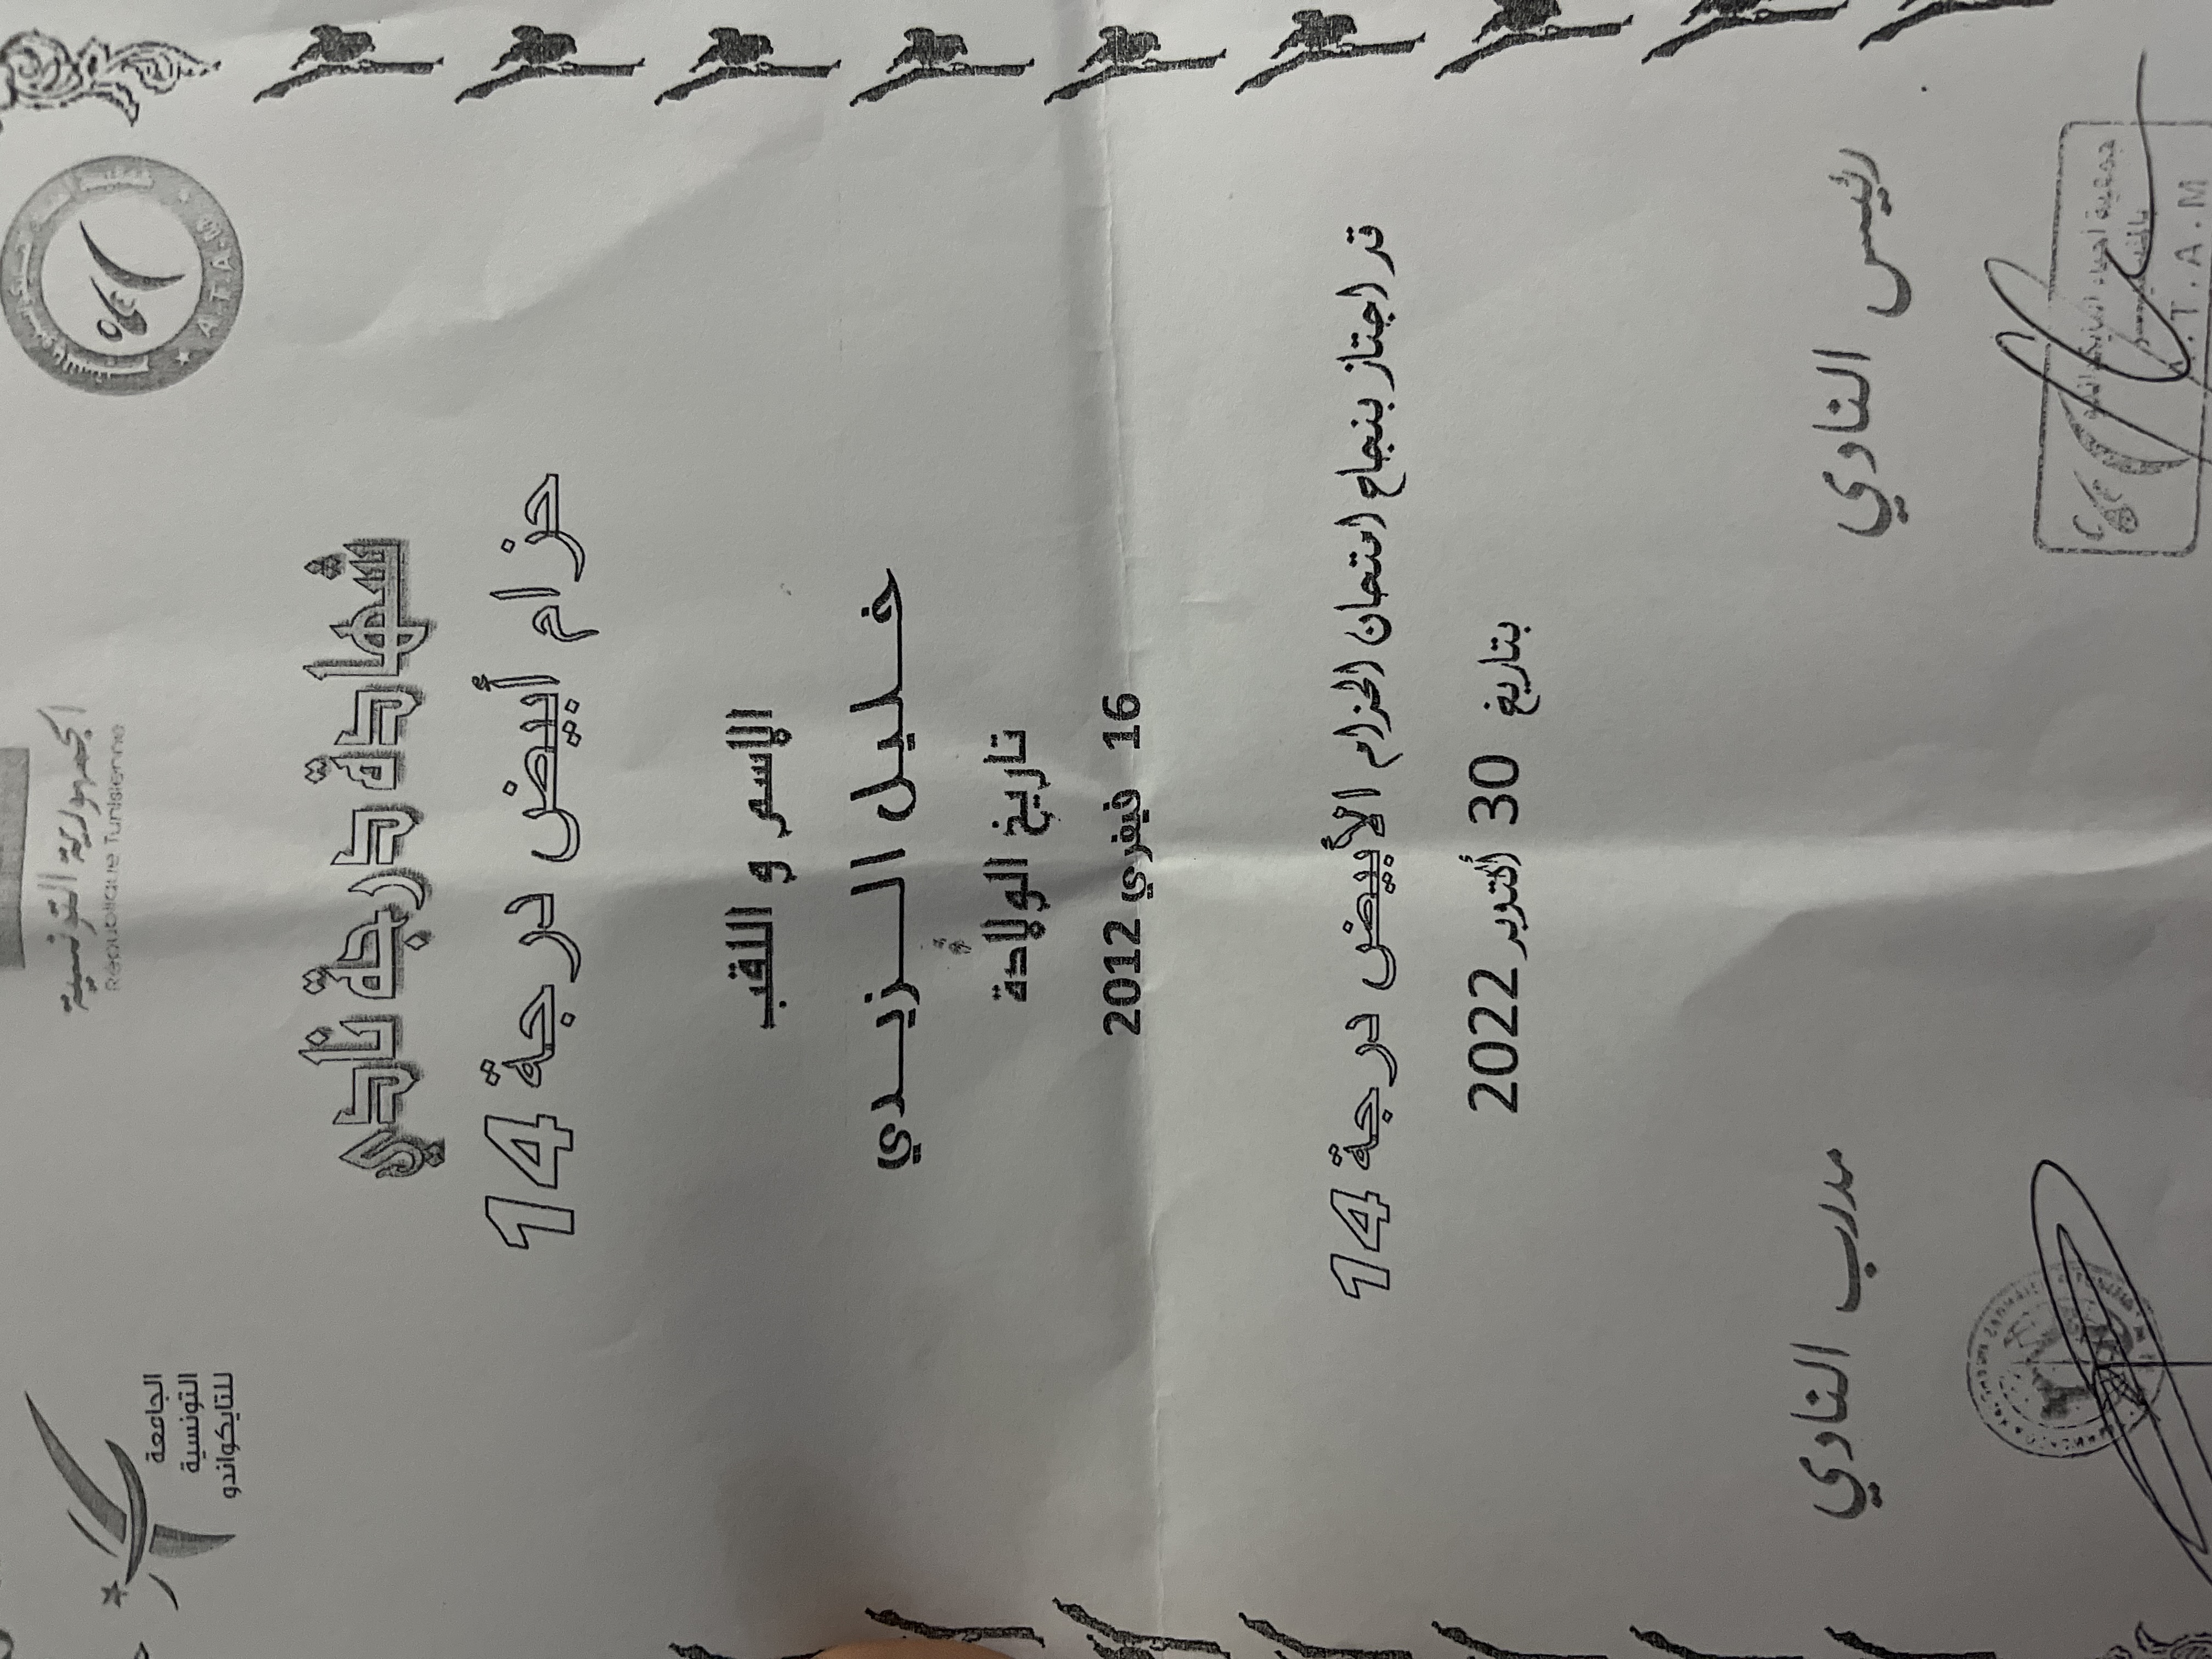 الجمهورية التونسية
République Tunisienne
الجامعة
التونسية
للتايكواندو
A.T.A.M
شهادة درجة نادي
حزام أبيض درجة 14
الإسم و اللقب
خليل الزيدي
تاريخ الولادة
16 فيفري 2012
قد اجتاز بنجاح امتحان الحزام الأبيض درجة 14
بتاريخ 30 أكتوبر 2022
رئيس النادي
مدرب النادي
جمعية أحباء التايكواندو
T.A.M